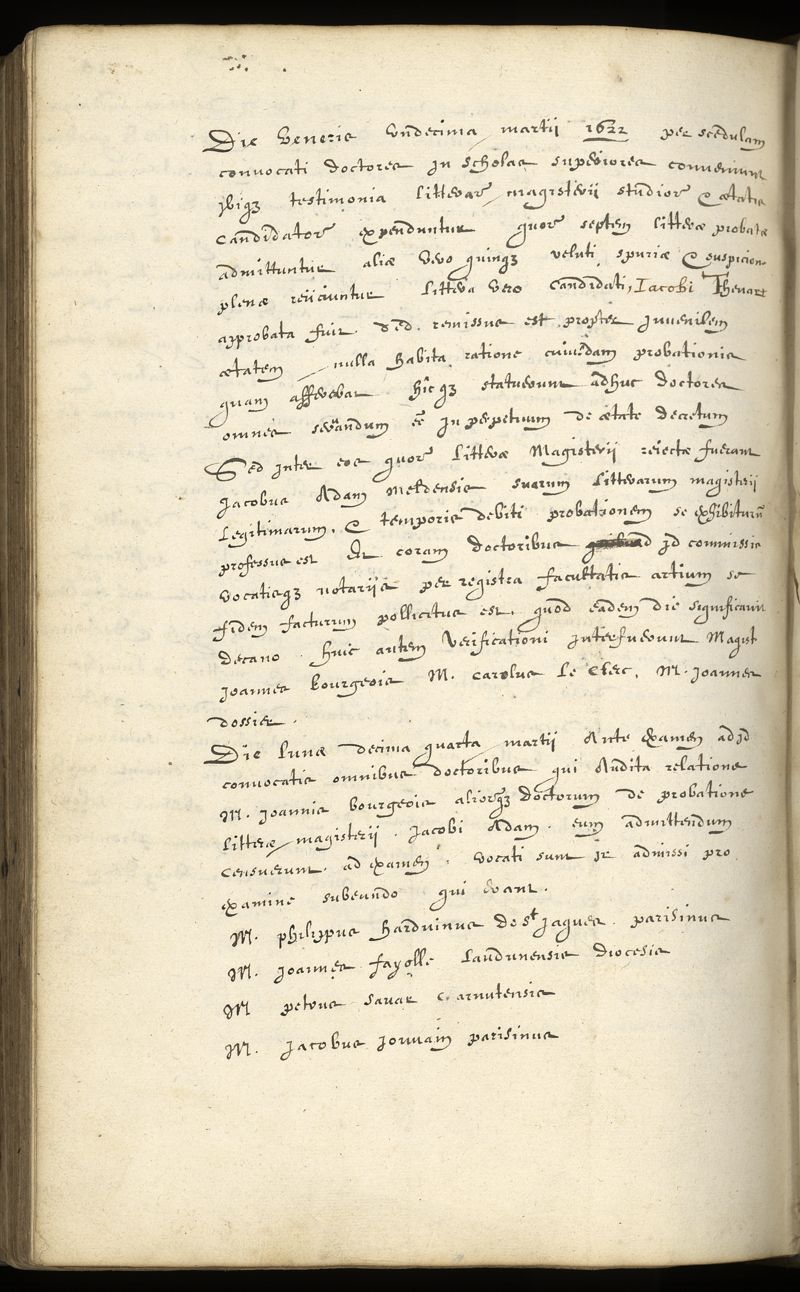 Die Veneris Undecima martii 1622 per scedulam
convocati doctores in scholas superiores conveniunt
ibiq; testimonia litterar magisterii studior & ætatis
candidator expenduntur quor septem litteræ probatæ
admittuntur aliæ vero quinq; veluti spuriæ & suspicion
plenæ reiiciuntur littera vero candidati, Iacobi Thevart
approbata fuit. sed remissus est propter juvenilem
ætatem nulla habita ratione cuiusdam probationis
quam asserebat hicq; statuerunt adhuc doctores
omnes servandum eē in perpetuum de ætate decretum
Sed inter eos quor litteræ Magisterii reiectæ fuerant
Jacobus Adam Meldensis suarum litterarum magisterij
legitimarum, & temporis debiti probationem se exhibiturū
professus est Et coram doctoribus ad id commissis
vocatisq; notariis per registra facultatis artium se
fidem facturum pollicitus est. quod eadem die significavit
decano. huic autem verificationi interfuerunt Magist
joannes bourgeois M. carolus le clerc, M. Joannes
dossier.
Die lunæ decima quarta martii Ante examen ad id
convocatis omnibus doctoribus qui Audita relatione
M. joannis bourgeois aliorūq; doctorum de probatione
litteræ magisterii. jacobi Adam. eum admittendum
censuerunt. ad examen, vocati sunt et admissi pro
examine subeundo qui erant.
M. philippus harduinus de st jaques. parisinus
M. joannes fayolle laudunensis diocesis
M petrus savar carnutensis
M. jacobus jouvain parisinus